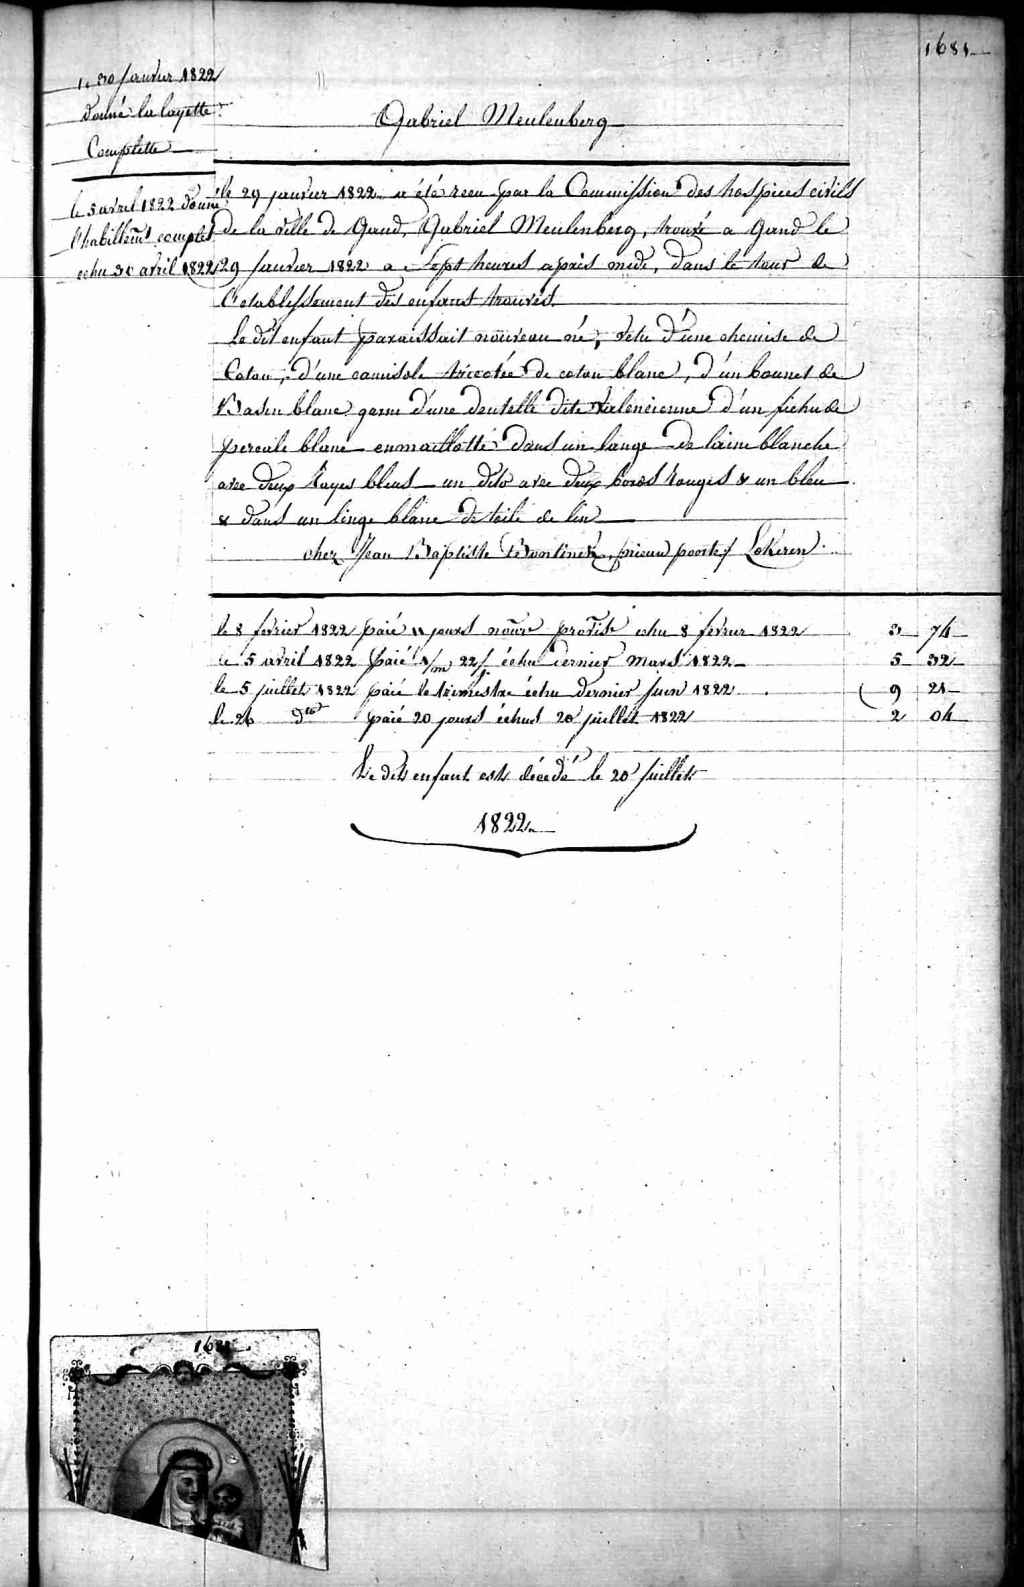 1681
le 30 Janvier 1822
donné la layette
Complette
le 5 avril 1822 donné
l'habillemt complet
echu 30 avril 1822
Gabriel Meulenberg
le 29 janvier 1822 a été recu par la Commission des hospices civils
de la ville de Gand, Gabriel Meulenberg, trouvé a Gand le
29 Janvier 1822 a Sept heures après midi, dans le tour de
l'etablissement des enfans trouvés
Le dit enfant paraissait nouveau né, vetu d'une chemise de
Coton, d'une camisole tricotée de coton blanc, d'un bonnet de
Basin blanc garni d'une dentelle dite valencienne d'un fichu de
percale blanc enmaillotté dans un lange de laine blanche
avec deux Rayes bleus un dito avec deux bords Rouges & un bleu
& dans un linge blanc de toile de lin
chez Jean Baptiste Bontinck, Lokeren
le 8 fevrier 1822 paié 11 jours nourre provise echu 8 fevrier 1822 3 74
le 5 avril 1822 paié 1/m 22/j echu dernier Mars 1822 5 32
le 5 juillet 1822 paié le trimestre échu dernier Juin 1822 9 21
le 26 dto paié 20 jours échus 20 juillet 1822 2 04
Le dit enfant est décedé le 20 Juillet
1822
1681